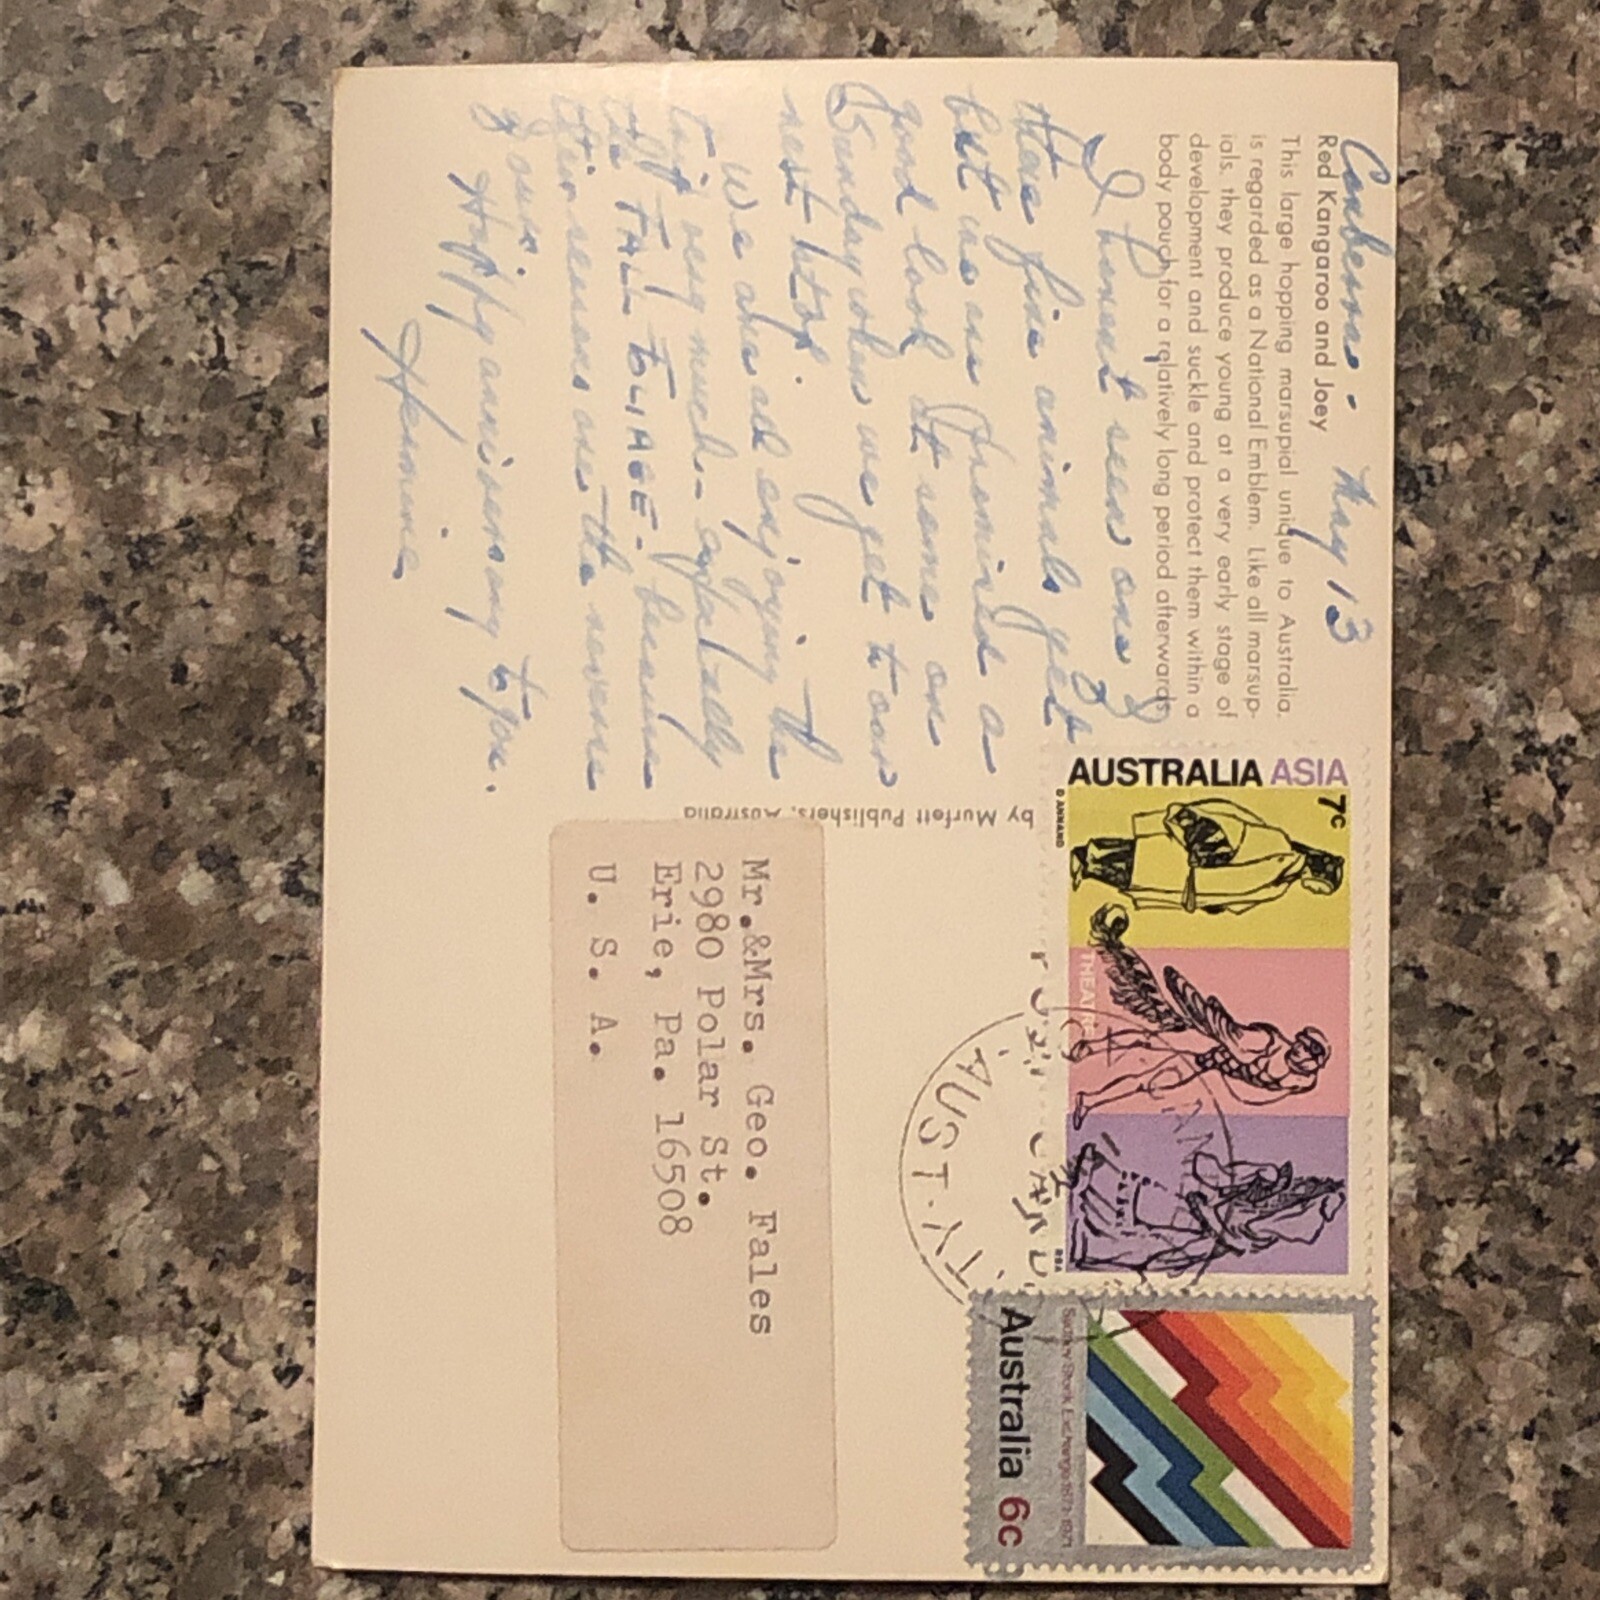 Canberra - May 13
Red Kangaroo and Joey
This large hopping marsupial unique to Australia,
is regarded as a National Emblem. Like all marsup-
ials, they produce young at a very early stage of
development and suckle and protect them within a
body pouch for a relatively long period afterwards
I haven't seen one of
these fine animals yet
but we are promised a
good look at some on
Sunday when we get to our
next hotel.
We are all enjoying the
trip very much - especially
the FALL FOLIAGE - because
their seasons are the reverse
of ours.
Happy anniversary to you.
Hermine
by Murfett Publishers, Australia
AUSTRALIA ASIA
7c
D ANNAND
THEATRE
RBA
POST CARD
CAN
AUST. CAP. TY
Australia 6c
Sydney Stock Exchange 1871-1971
Mr.&Mrs. Geo. Fales
2980 Polar St.
Erie, Pa. 16508
U. S. A.